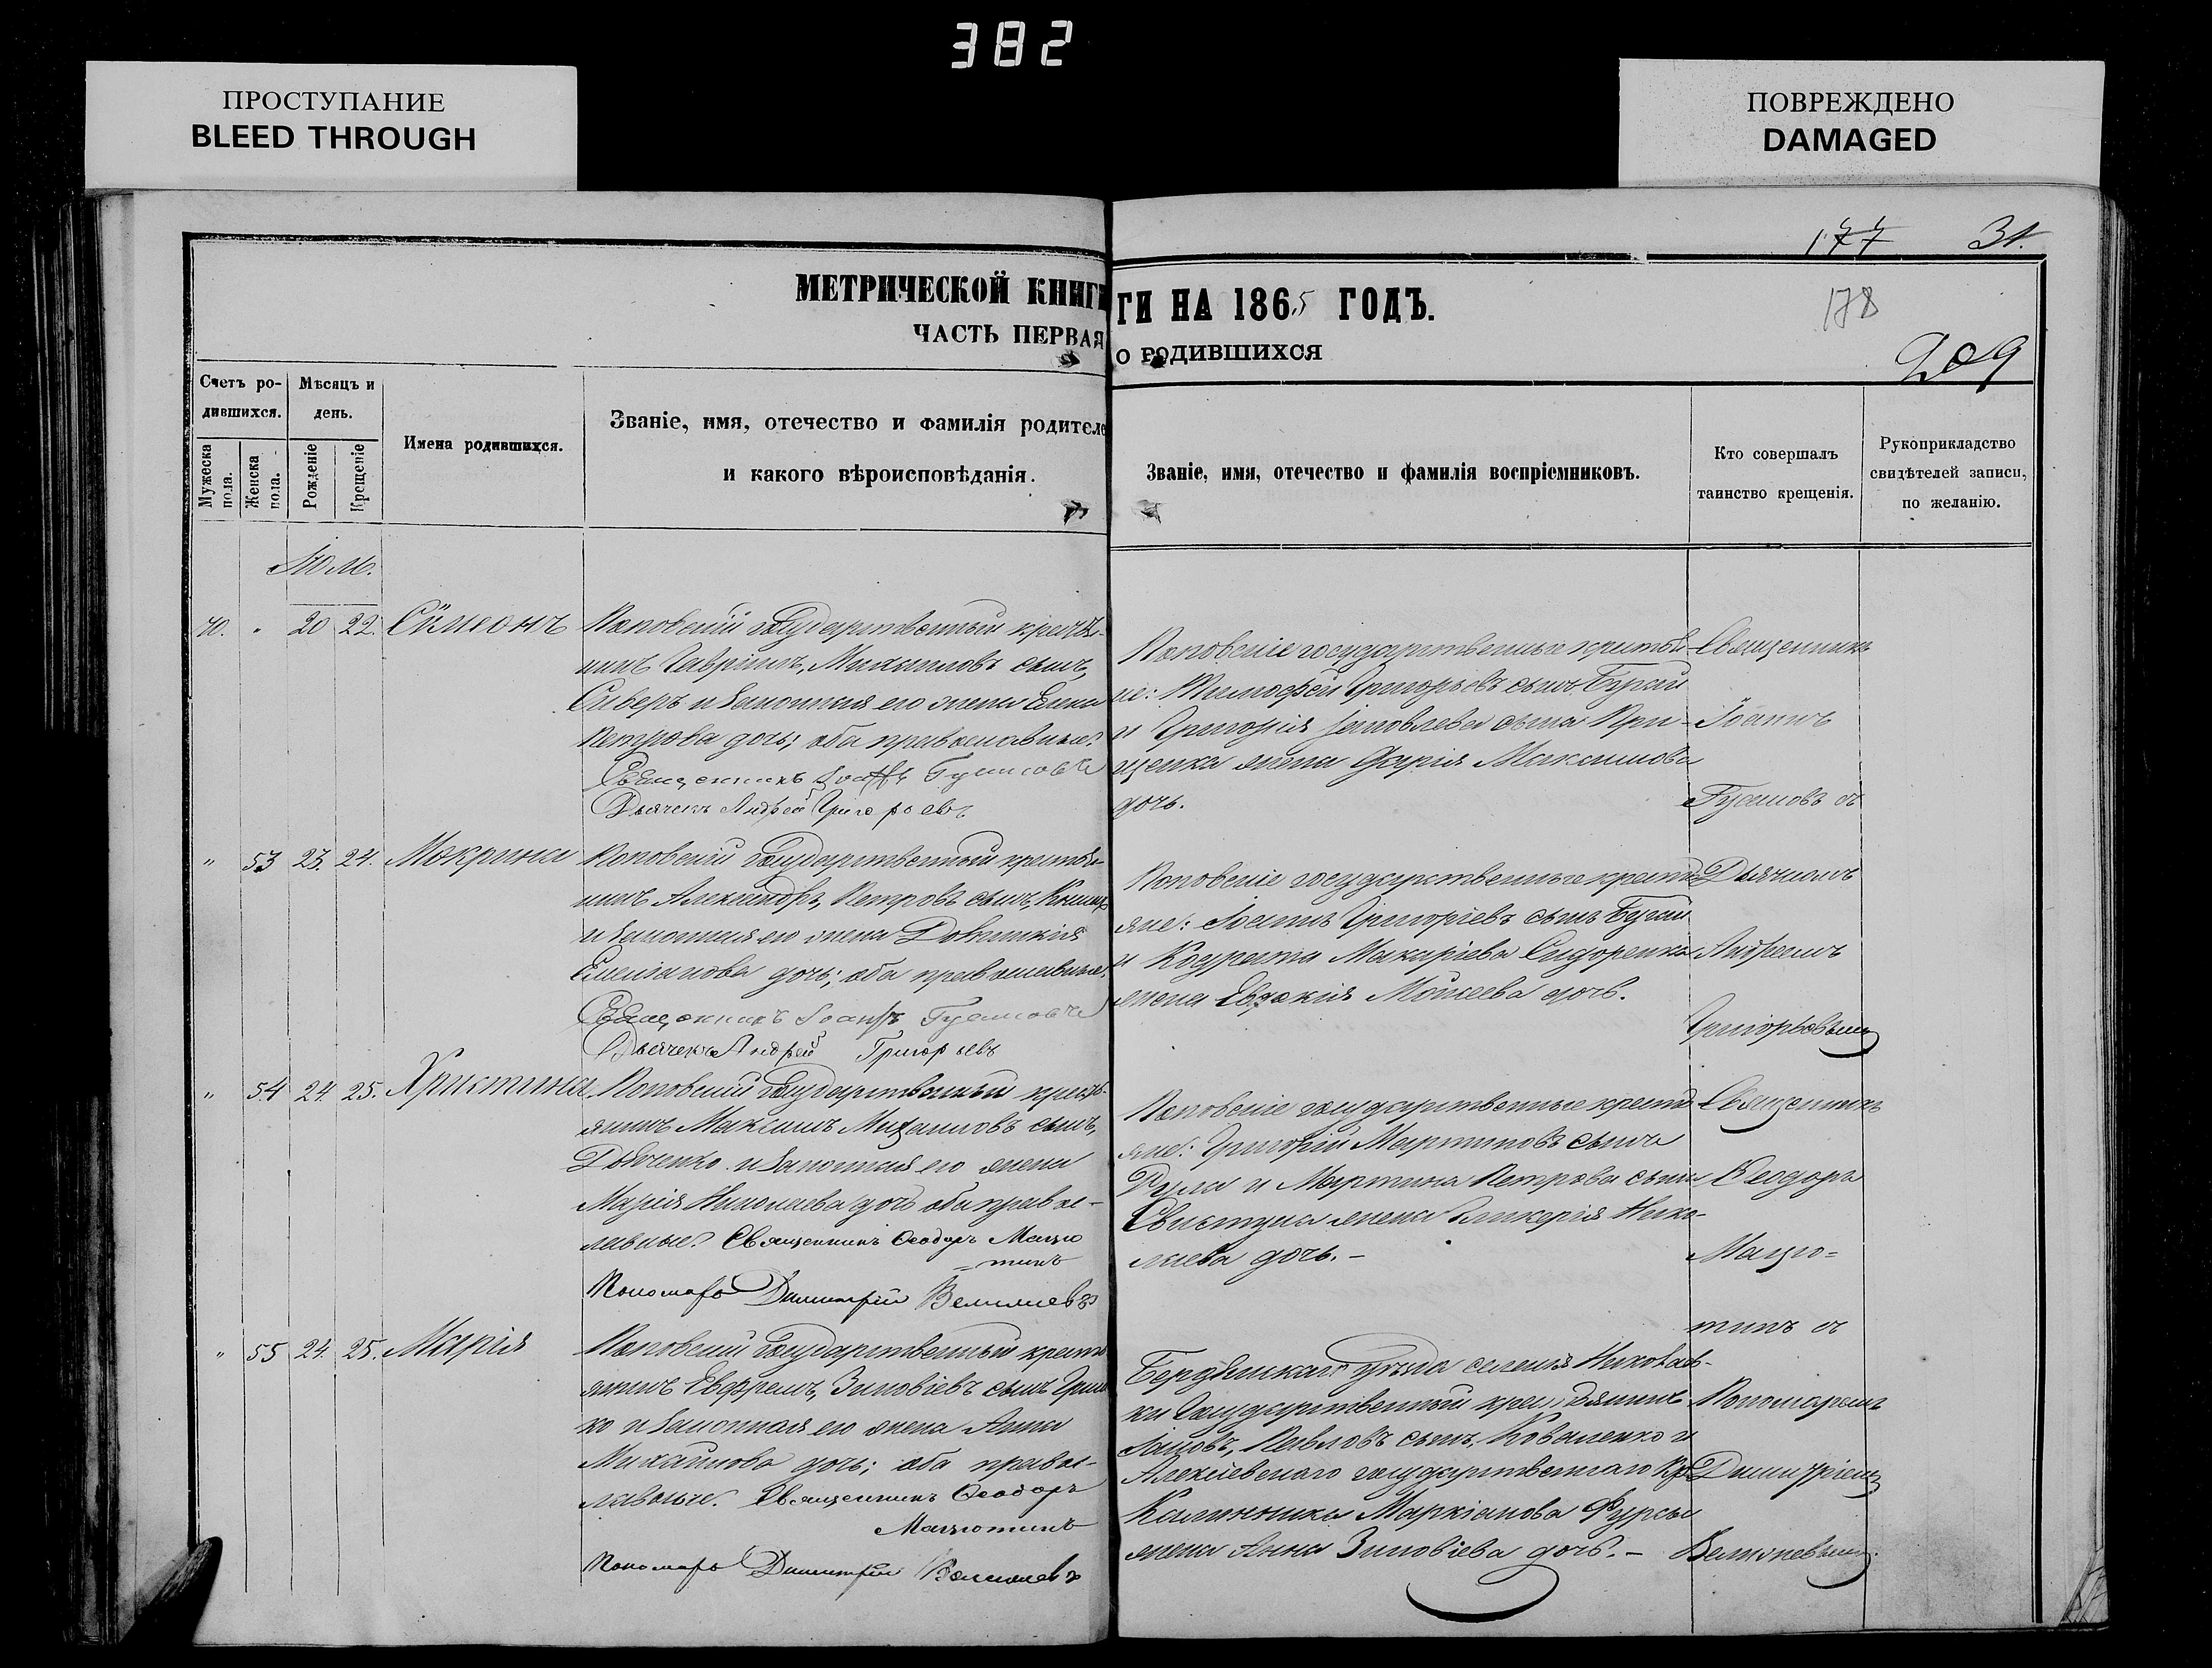 382
ПРОСТУПАНИЕ
BLEED THROUGH
ПОВРЕЖДЕНО
DAMAGED
177 31.
178
209
МЕТРИЧЕСКОЙ КНИГИ
ЧАСТЬ ПЕРВАЯ
ГИ НА 1865 ГОДЪ.
О РОДИВШИХСЯ
Счетъ ро-
дившихся.
Мужеска
пола.
Женска
пола.
Мѣсяцъ и
день.
Рожденіе
Крещеніе
Имена родившихся.
Званіе, имя, отечество и фамилія родителе
и какого вѣроисповѣданія.
Званіе, имя, отечество и фамилія воспріемниковъ.
Кто совершалъ
таинство крещенія.
Рукоприкладство
свидѣтелей записи,
по желанію.
20 22. Сѵмеонъ
Поповскій Государственный крестья-
нинъ Гавріилъ, Михаиловъ сынъ,
и законная его жена Елена
Петрова дочь; оба православные.
Священникъ
Дьячекъ Андрей Григорьевъ
Поповскіе государственные крестья-
не: Тимофей Григорьевъ сынъ Бугай
и Григорія Іаковлева сына
жена Дарія Максимова
дочь.
Священникъ
Іоаннъ
съ
" 53 23. 24. Макрина
Поповскій Государственный крестья-
нинъ Александръ, Петровъ сынъ,
и законная его жена Домникія
дочь; оба православные.
Священникъ
Дьячекъ Андрей Григорьевъ
Поповскіе государственные крестья
яне: Іоаннъ Григоріевъ сынъ Бугай
и Кодрата Макаріева Сидоренка
жена Евдокія Моисеева дочь.
Дьячкомъ
Андреемъ
Григорьевымъ
" 54 24. 25. Христина
Поповскій Государственный кресть-
янинъ Максимъ Михаиловъ сынъ,
Дьяченко и законная его жена
Марія Николаева дочь оба правос-
лавные. Священникъ Ѳеодоръ Мацю
=тинъ
Пономарь Димитрій
Поповскіе государственные крестья
яне: Григорій Мартиновъ сынъ
и Мартина Петрова сына
Свистуна жена Гликерія Нико-
лаева дочь.-
Священникъ
Ѳеодоръ
Мацю=
тинъ съ
" 55 24. 25. Марія
Поповскій Государственный крестья
янинъ Евфремъ, Зиновіевъ сынъ
ко и законная его жена Анна
Михайлова дочь; оба правос-
лавные. Священникъ Ѳеодоръ
Мацютинъ
Пономарь Димитрій
Бердянскаго уѣзда селенія Николаев-
ки Государственный крестьянинъ
Іаковъ, Павловъ сынъ, Коваленко и
Алексіевскаго государственнаго кр
Калинника Маркіанова Фурсы
жена Анна Зиновіева дочь.-
Пономаремъ
Димитріемъ